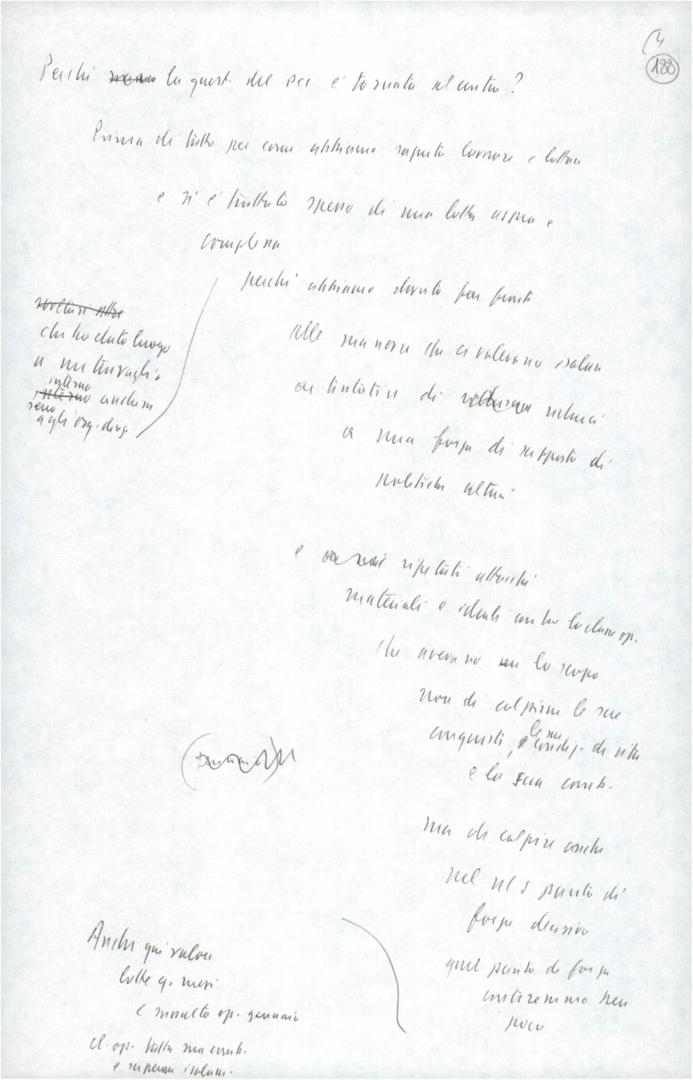 188
Perché la quest. del PCI è tornata al centro?
Prima di tutto per come abbiamo saputo lavorare e lottare
e si è trattato spesso di una lotta aspra e
complessa
perché abbiamo dovuto far fronte
alle manovre che ci volevano isolare
ai tentativi di ridurci
a una forza di supporto di
politiche altrui
che ha dato luogo
a un travaglio
interno anche in
seno
agli org. dirig.
e ripetuti attacchi
materiali e ideali contro la classe op.
che avevano lo scopo
non di colpirne le sue
conquiste, le sue condiz. di vita
e la sua comb.
ma di colpire anche
nel suo punto di
forza decisivo
quel punto di forza
conteremmo ben
poco
Anche qui valore
lotte q. mesi
e op. gennaio
cl. op. tutta sua comb.
e isolam.